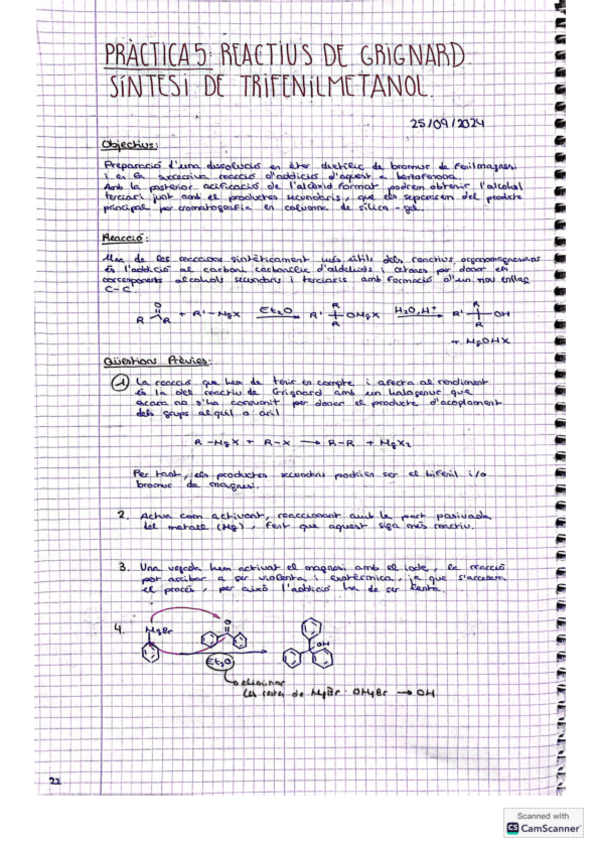 PRÀCTICA 5: REACTIUS DE GRIGNARD.
SÍNTESI DE TRIFENILMETANOL.
25/09/2024
Objectius:
Preparació d'una dissolució en èter dietílic de bromur de fenilmagnesi
i en la successiva reacció d'addició d'aquest a benzofenona.
Amb la posterior acificació de l'alcòxid format podrem obtenir l'alcohol
terciari junt amb el productes secundaris, que els separarem del producte
principal per cromatografia en columna de sílica-gel.
Reacció:
Una de les reaccions sintèticament més útils dels reactius organomagnesians
és l'addició al carboni carbonílic d'aldehids i cetones per donar els
corresponents alcohols secundaris i terciaris amb formació d'un nou enllaç
C-C.
O R R
R R + R'-MgX Et2O R' OMgX H2O, H+ R' OH
R R
+ MgOHX
Qüestions Prèvies:
1 La reacció que hem de tenir en compte i afecta al rendiment
és la del reactiu de Grignard amb un halogenur que
encara no s'ha consumit per donar el producte d'acoplament
dels grups alquil o aril
R-MgX + R-X → R-R + MgX2
Per tant, els productes secundaris podrien ser el bifenil i/o
bromur de magnesi.
2. Actua com activant, reaccionant amb la part pasivada
del metall (Mg), fent que aquest siga més reactiu.
3. Una vegada hem activat el magnesi amb el iode, la reacció
pot arribar a ser violenta i exotèrmica, ja que s'accelera
el procés, per això l'addició ha de ser lenta.
4. MgBr O OH
Et2O
eliminar
les restes de MgBr · OMgBr → OH
22
Scanned with
CS CamScanner